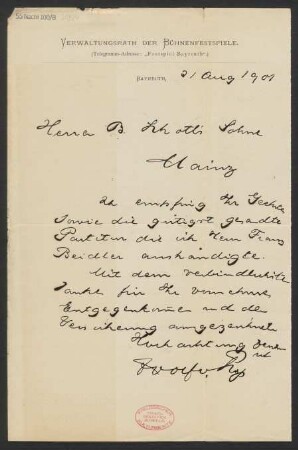 VERWALTUNGSRATH DER BÜHNENFESTSPIELE.
(Telegramm-Adresse: „Festspiel Bayreuth“.)
BAYREUTH, 21 Aug 1901
Herrn B. Schotts Söhne
Mainz
Ich empfing Ihr Geehrtes
sowie die gütigst gesandte
Partitur die ich Herrn Franz
Beidler aushändigte.
Mit dem verbindlichsten
Danke für Ihr
Entgegenkommen und der
Versicherung ausgezeichneter
Hochachtung